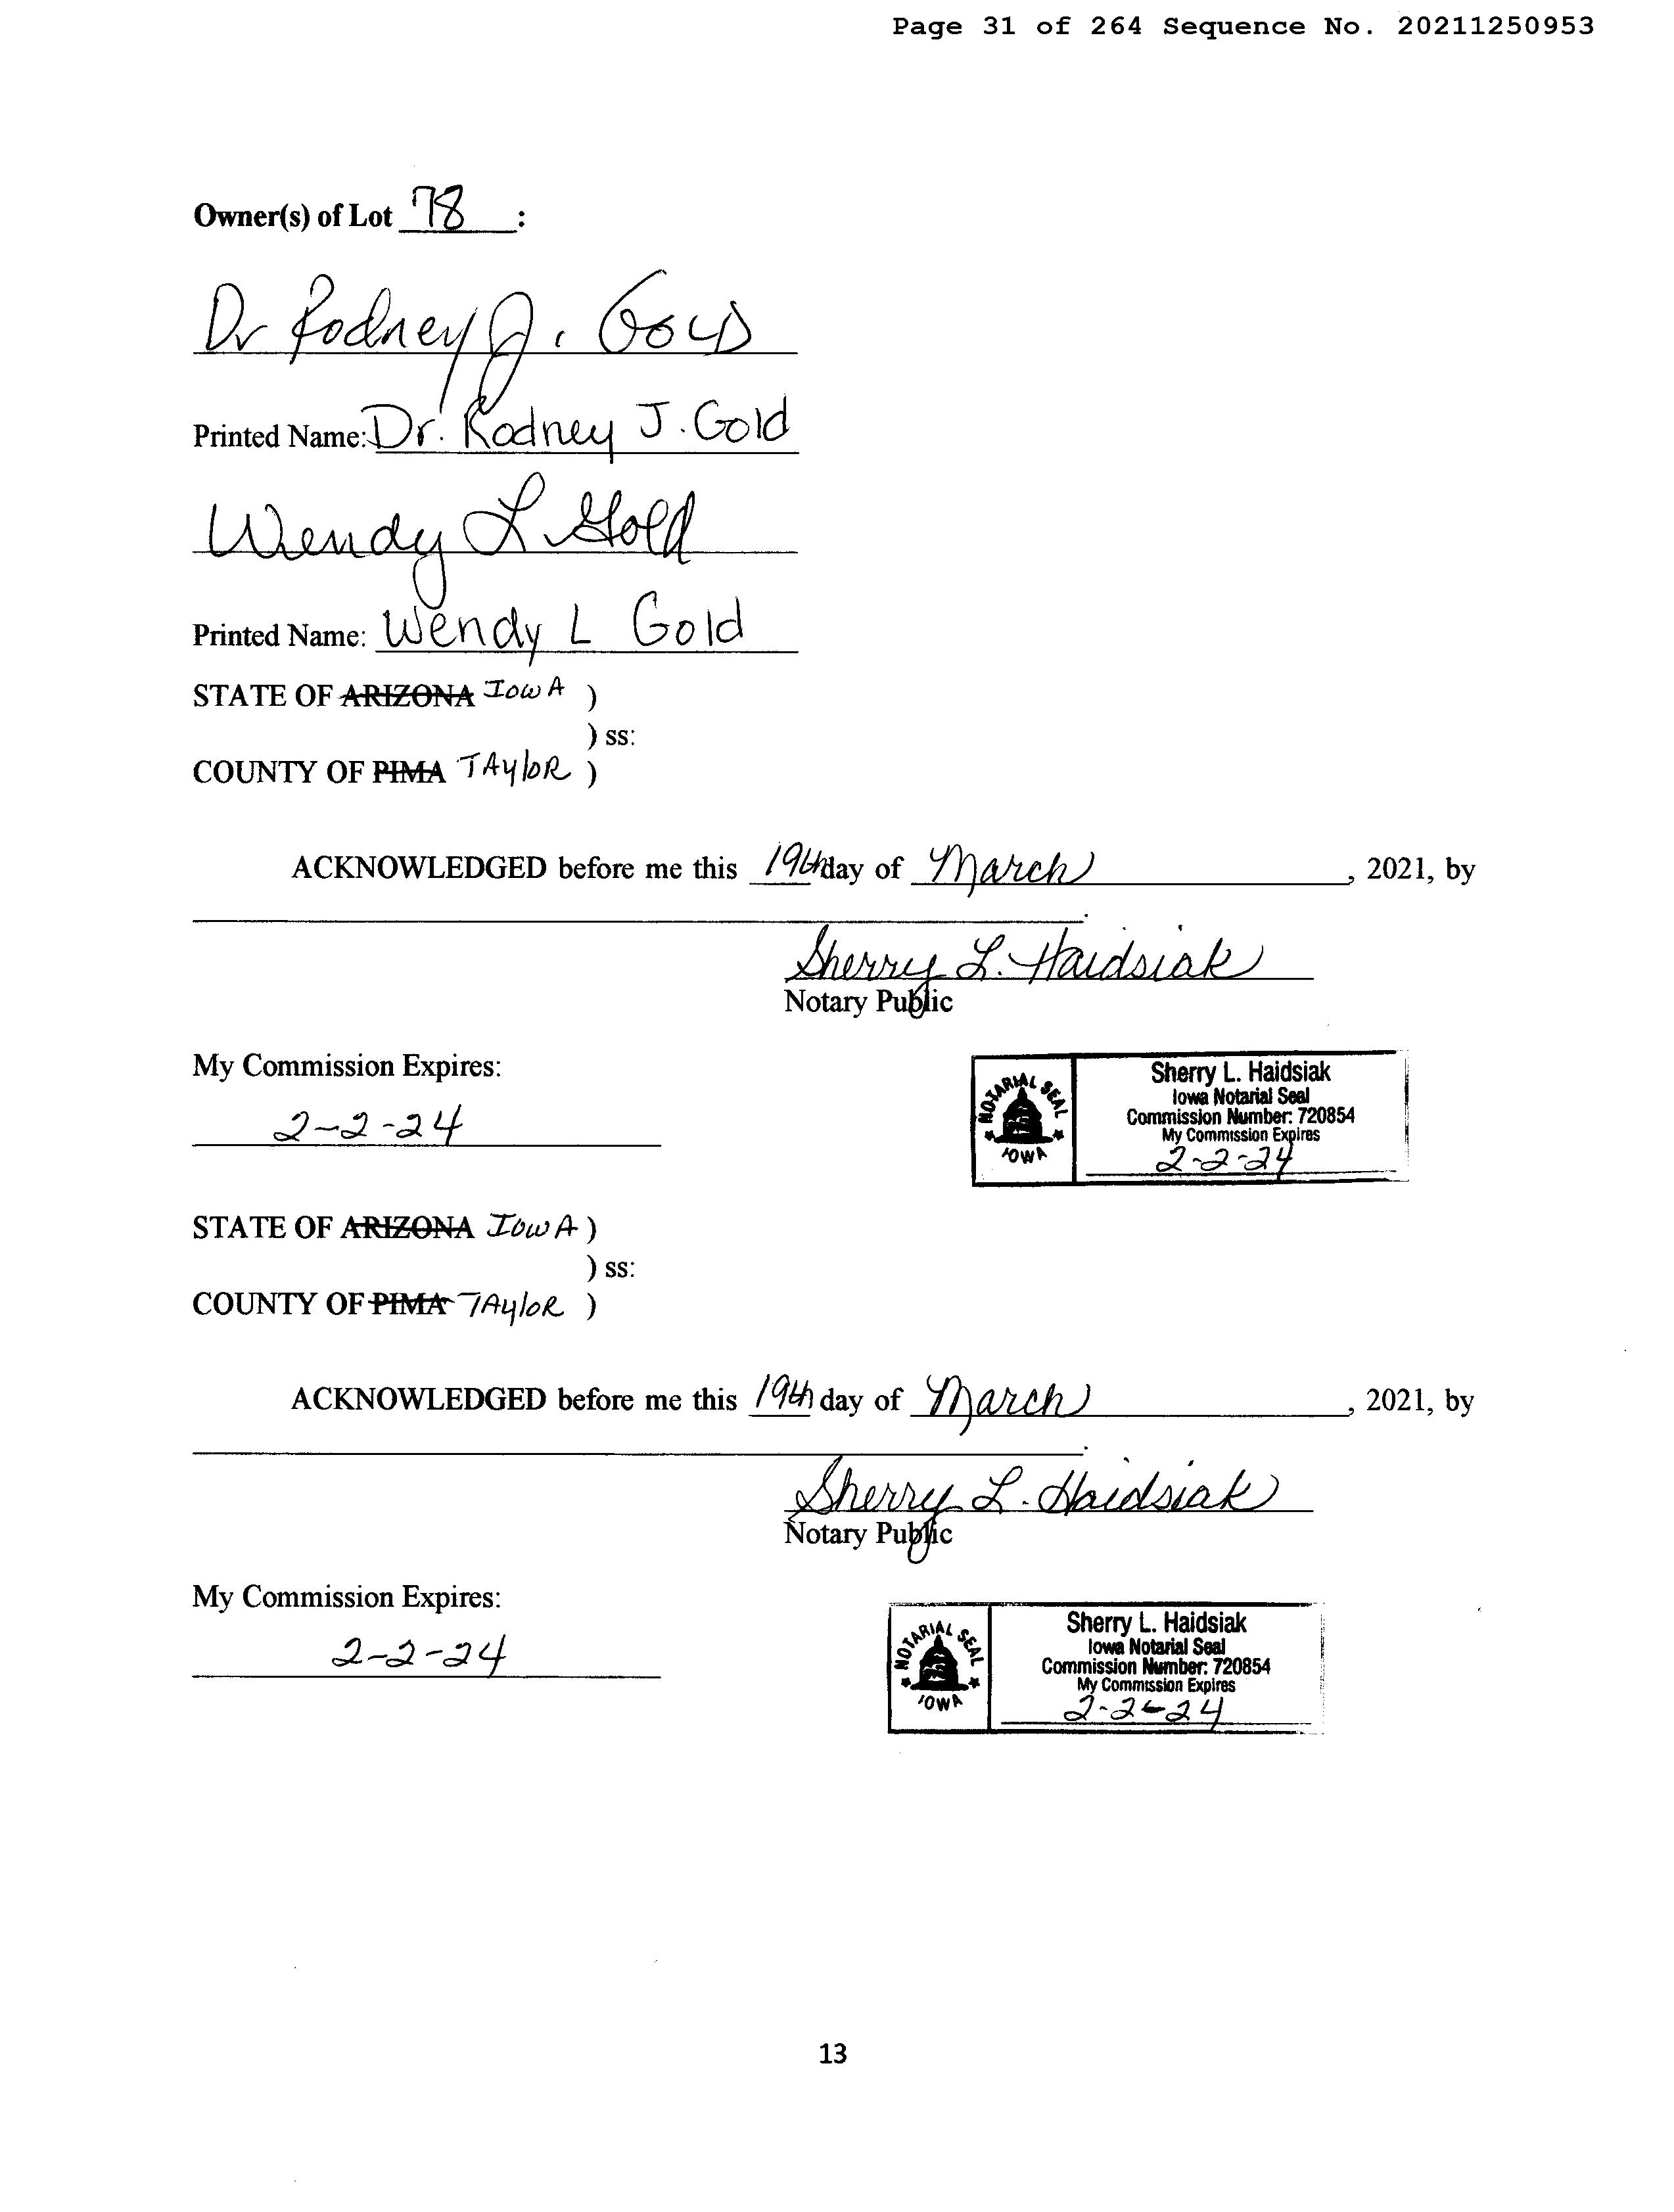 Page 31 of 264 Sequence No. 20211250953
Owner(s) of Lot 78 :
Dr Rodney J. Gold
Printed Name: Dr. Rodney J. Gold
Wendy L. Gold
Printed Name: Wendy L Gold
STATE OF ARIZONA IOWA )
) ss:
COUNTY OF PIMA TAYloR )
ACKNOWLEDGED before me this 19th day of March , 2021, by
.
Sherry L. Haidsiak
Notary Public
My Commission Expires:
2-2-24
NOTARIAL SEAL
IOWA
Sherry L. Haidsiak
Iowa Notarial Seal
Commission Number: 720854
My Commission Expires
2-2-24
STATE OF ARIZONA IOWA )
) ss:
COUNTY OF PIMA TAYloR )
ACKNOWLEDGED before me this 19th day of March , 2021, by
.
Sherry L. Haidsiak
Notary Public
My Commission Expires:
2-2-24
NOTARIAL SEAL
IOWA
Sherry L. Haidsiak
Iowa Notarial Seal
Commission Number: 720854
My Commission Expires
2-2-24
13